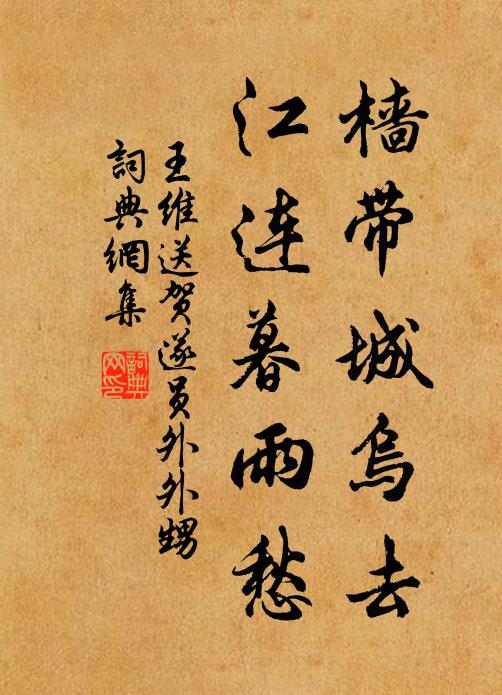 樯带城烏去
江连暮雨愁
王维送贺遂员外外甥
詞典網集
詞典
网印